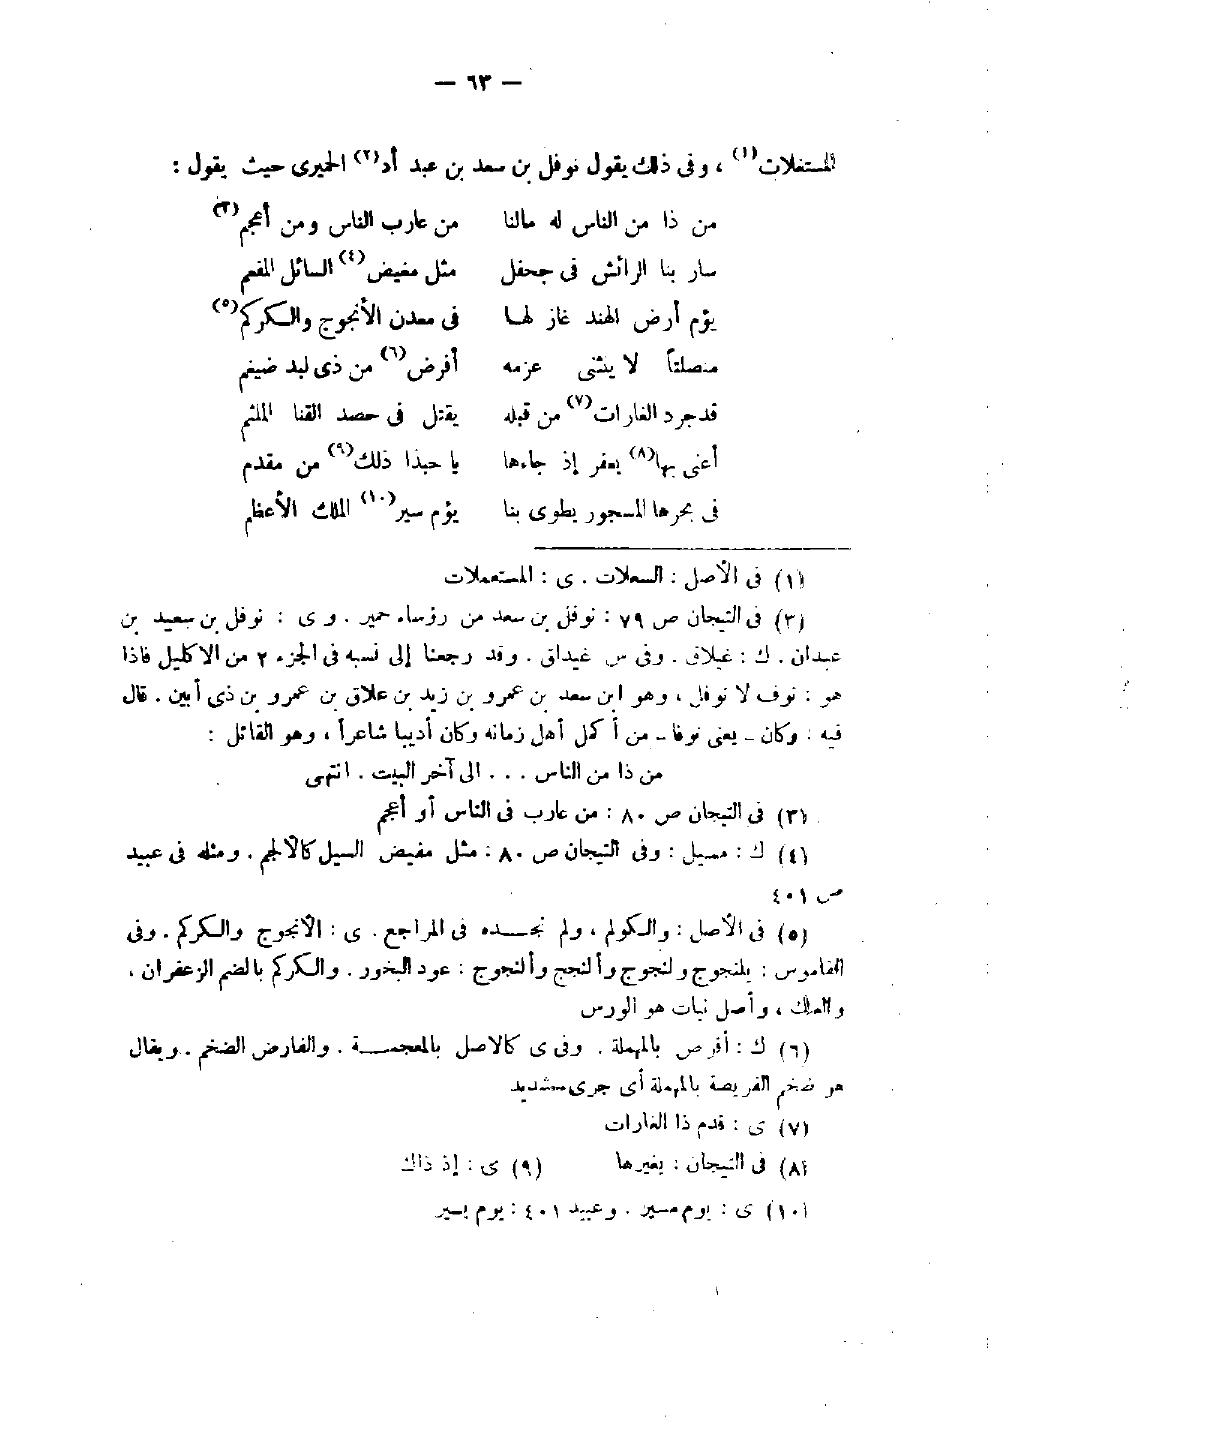 — ٦٣ —
المستغلات(١) ، وفى ذلك يقول نوفل بن سعد بن عبد أد(٢) الحميرى حيث يقول :
من ذا من الناس له مالنا من عارب الناس ومن أعجم(٣)
سار بنا الرائش فى جحفل مثل مغيض(٤) السائل المفعم
يؤم أرض الهند غاز لها فى معدن الأنجوج والكركم(٥)
منصلتاً لا ينثنى عزمه أفرض(٦) من ذى لبد ضيغم
قد جرد الغارات(٧) من قبله يقتل فى حصد القنا الملثم
أعنى بها(٨) يعفر إذ جاءها يا حبذا ذلك(٩) من مقدم
فى بحرها المسجور يطوى بنا يؤم سير(١٠) الملك الأعظم
(١) فى الأصل : السعلات . ى : المستعملات
(٢) فى التيجان ص ٧٩ : نوفل بن سعد من رؤساء حمير . و ى : نوفل بن سعيد بن
عبدان . ك : غيلاق . وفى س غيداق . وقد رجعنا إلى نسبه فى الجزء ٢ من الاكليل فاذا
هو : نوف لا نوفل ، وهو ابن سعد بن عمرو بن زيد بن علاق بن عمرو بن ذى أبين . قال
فيه : وكان ـ يعنى نوفا ـ من أكمل أهل زمانه وكان أديبا شاعراً ، وهو القائل :
من ذا من الناس . . . الى آخر البيت . انتهى
(٣) فى التيجان ص ٨٠ : من عارب فى الناس أو أعجم
(٤) ك : مسيل : وفى التيجان ص ٨٠ : مثل مفيض السيل كالالجم . ومثله فى عبيد
ص ٤٠١
(٥) فى الأصل : والكولم ، ولم نجده فى المراجع . ى : الانجوج والكركم . وفى
القاموس : يلنجوج ولنجوج وألنجج وألنجوج : عود البخور . والكركم بالضم الزعفران ،
والعلك ، وأصل نبات هو الورس
(٦) ك : أفرص بالمهملة . وفى ى كالاصل بالمعجمة . والفارض الضخم . ويقال
هو ضخم الفريصة بالمهملة أى جرى شديد
(٧) ى : قدم ذا الغارات
(٨) فى التيجان : يغيرها (٩) ى : إذ ذاك
(١٠) ى : يوم مسير . وعبيد ٤٠١ : يوم يسير